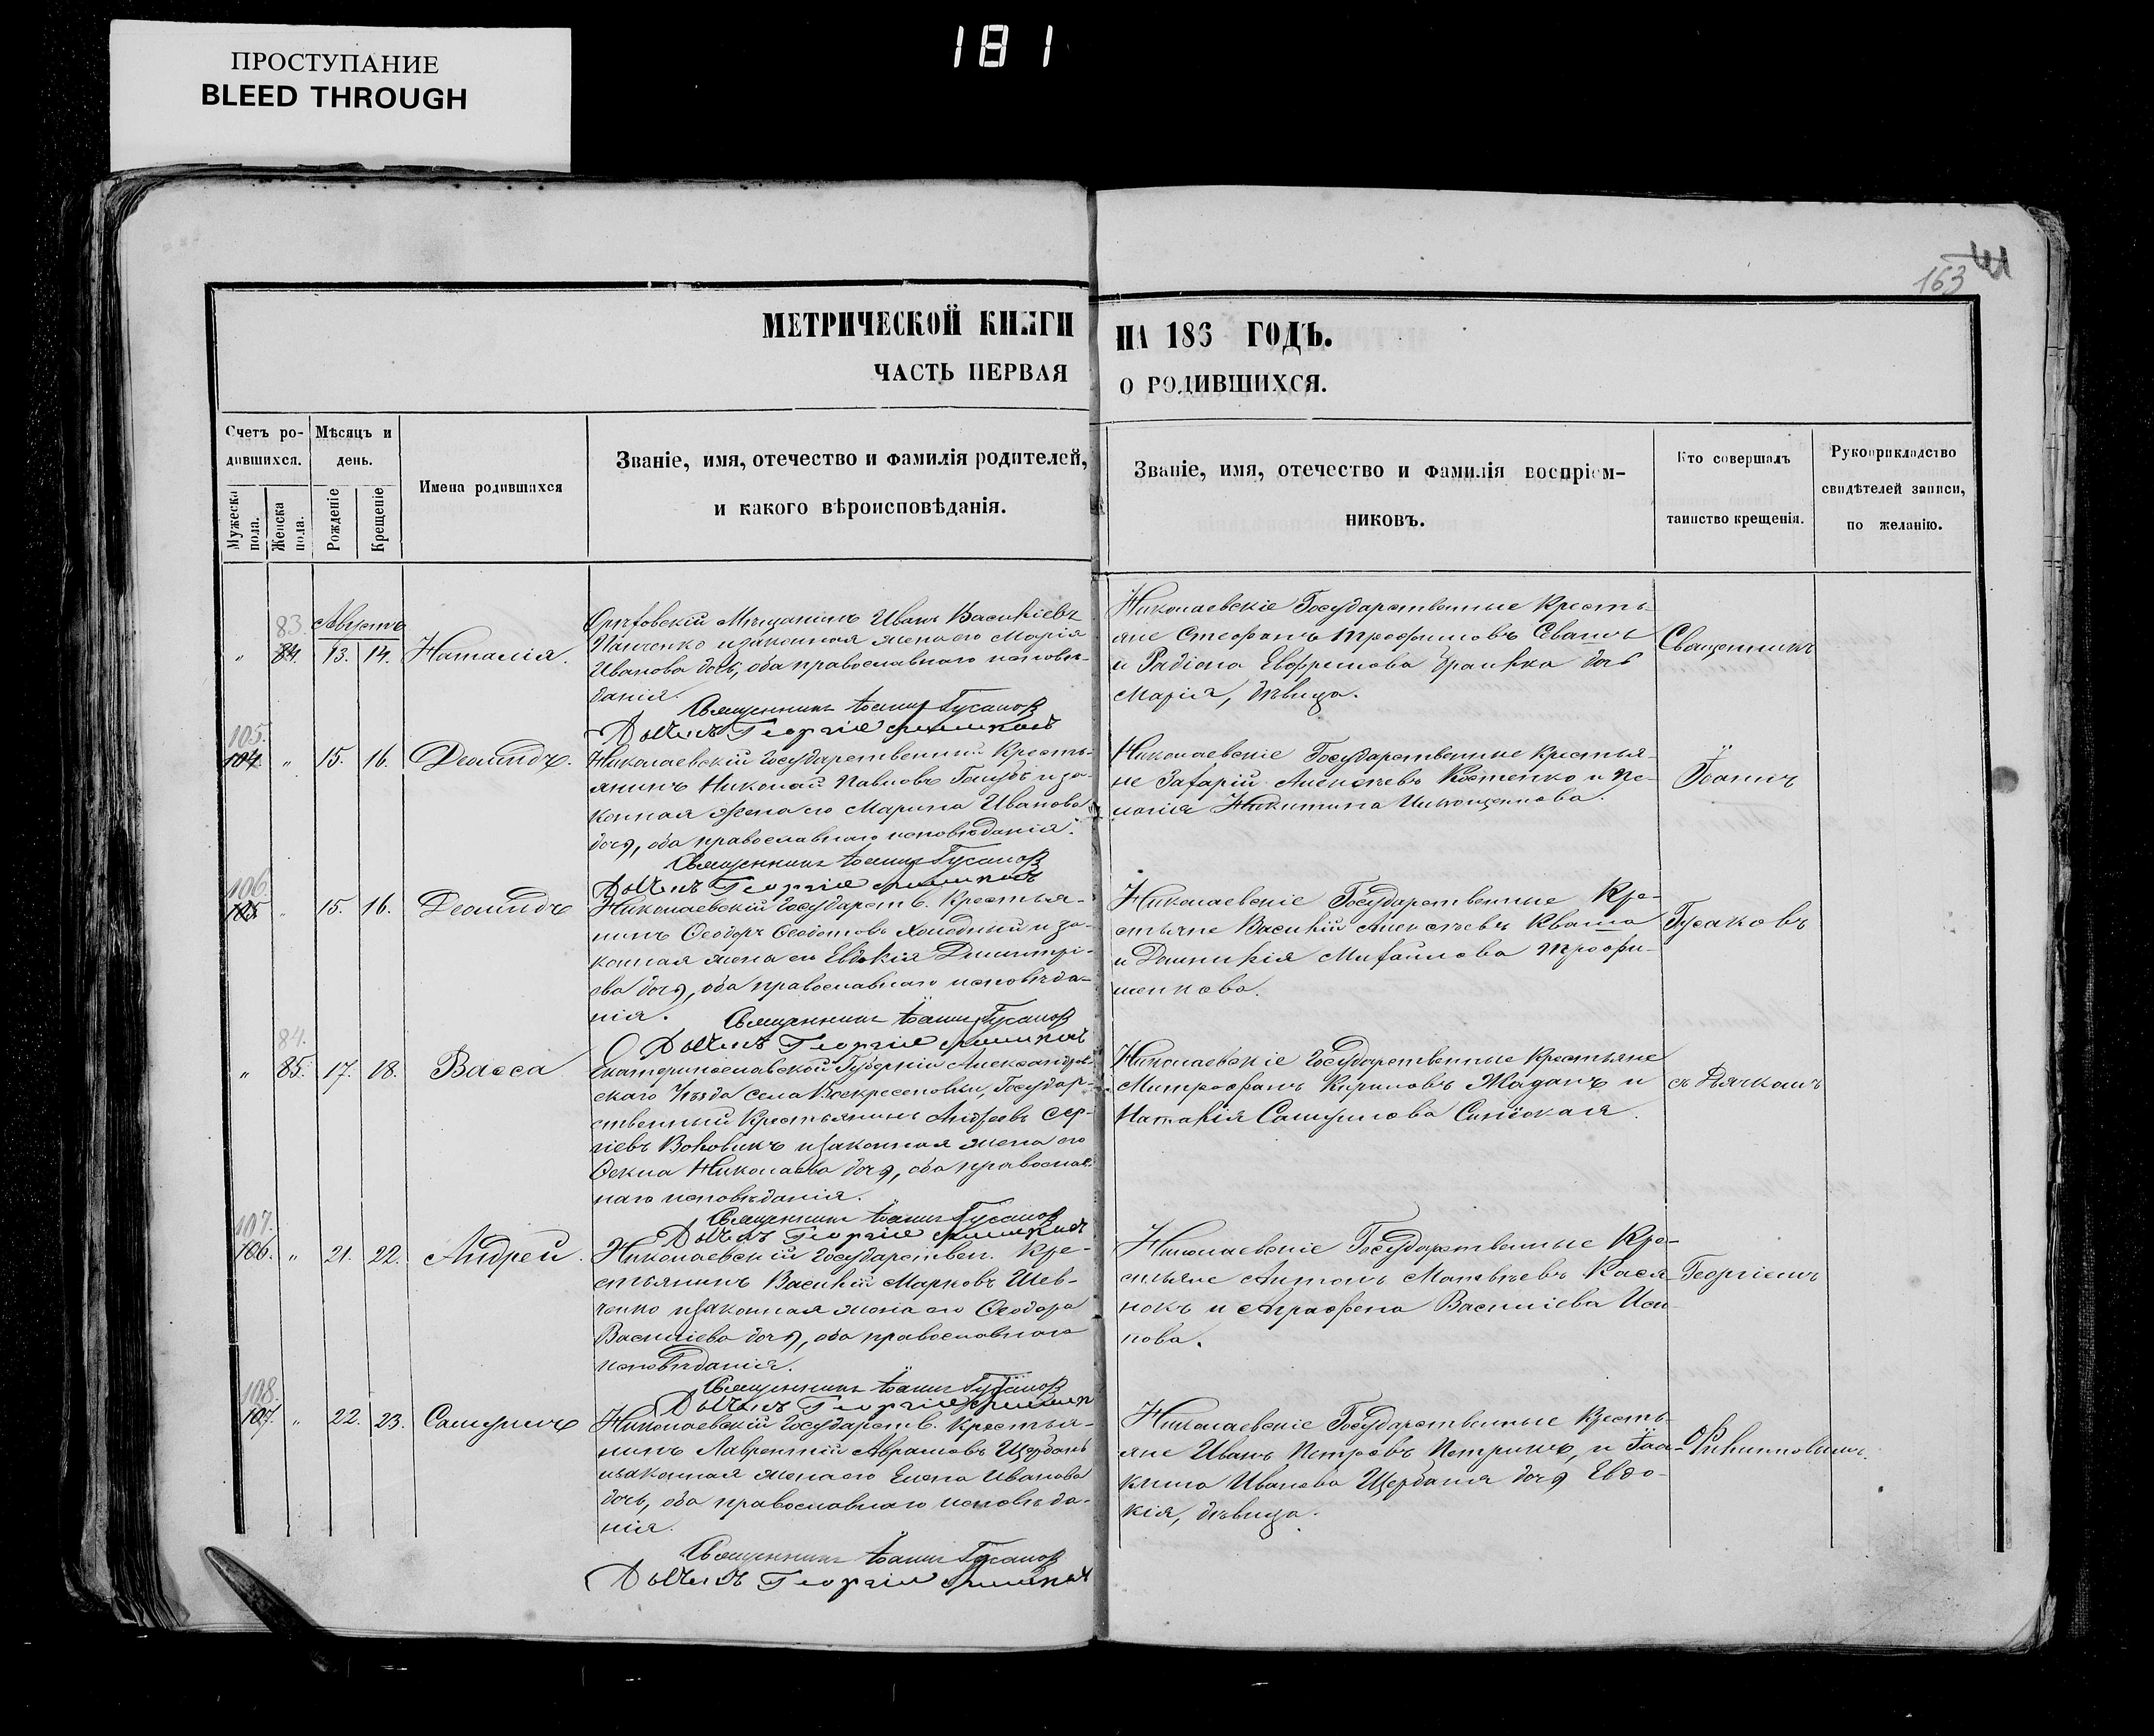 181
ПРОСТУПАНИЕ
BLEED THROUGH
163
МЕТРИЧЕСКОЙ КНИГИ НА 186 ГОДЪ.
ЧАСТЬ ПЕРВАЯ О РОДИВШИХСЯ.
Счетъ ро-
дившихся.
Мужеска пола.
Женска пола.
Мѣсяцъ и
день.
Рождение
Крещение
Имена родившихся
Званіе, имя, отечество и фамилія родителей,
и какого вѣроисповѣданія.
Званіе, имя, отечество и фамилія воспріем-
никовъ.
Кто совершалъ
таинство крещенія.
Рукоприкладство
свидѣтелей записи,
по желанію.
83. Августъ
" 84. 13. 14. Наталія.
Орѣховскій Мѣщанинъ Иванъ Василіевъ
Панченко и законная жена его Марія
Иванова дочь, оба православнаго исповѣ-
данія.
Священникъ Іоаннъ Гусаковъ
Дьячекъ Георгій
Николаевскіе Государственные Кресть-
яне Стефанъ Трофимовъ
и Радіона Евфремова дочь
Марія, дѣвица.
Священникъ
105.
104. " 15. 16. Леонидъ.
Николаевскій Государственный Кресть-
янинъ Николай Павловъ Голубъ и за-
конная жена его Марина Иванова
дочь, оба православнаго исповѣданія.
Священникъ Іоаннъ Гусаковъ
Дьячекъ Георгій
Николаевскіе Государственные Крестья-
не Захарій Алексѣевъ Костенко и Пе-
лагія Никитина
Іоаннъ
106.
105 " 15. 16. Леонидъ
Николаевскій Государств. Крестья-
нинъ Ѳеодоръ Ѳедотовъ Холодный и за-
конная жена его Евдокія Димитрі-
ева дочь, оба православнаго исповѣда-
нія.
Священникъ Іоаннъ Гусаковъ
Дьячекъ Георгій
Николаевскіе Государственные Кре-
стьяне Василій Алексѣевъ Кваша
и Домникія Михайлова Трофи-
менкова.
Гусаковъ
84.
" 85. 17. 18. Васса
Екатеринославской Губерніи Александров-
скаго Уѣзда села Воскресеновки, Государ-
ственный Крестьянинъ Андрей Сер-
гіевъ Вововикъ и законная жена его
Ѳекла Николаева дочь, оба православ-
наго исповѣданія.
Священникъ Іоаннъ Гусаковъ
Дьячекъ Георгій
Николаевскіе Государственные Крестьяне
Митрофанъ Кириловъ Жаданъ и
Наталія Самуилова
съ Дьячкомъ
107.
106. " 21. 22. Андрей.
Николаевскій Государствен. Кре-
стьянинъ Василій Марковъ Шев-
ченко и законная жена его Ѳеодора
Василіева дочь, оба православнаго
исповѣданія.
Священникъ Іоаннъ Гусаковъ
Дьячекъ Георгій
Николаевскіе Государственные Кре-
стьяне Антонъ Матвѣевъ Кася-
нокъ и Агрофена Василіева
нова.
Георгіемъ
108.
107. " 22. 23. Самуилъ
Николаевскій Государств. Крестья-
нинъ Лаврентій Аврамовъ Щербань
и законная жена его Елена Иванова
дочь, оба православнаго исповѣда-
нія.
Священникъ Іоаннъ Гусаковъ
Дьячекъ Георгій
Николаевскіе Государственные Кресть-
яне Иванъ Петровъ Петрикъ, и Іоа-
кима Иванова Щербаня дочь Евдо-
кія, дѣвица.